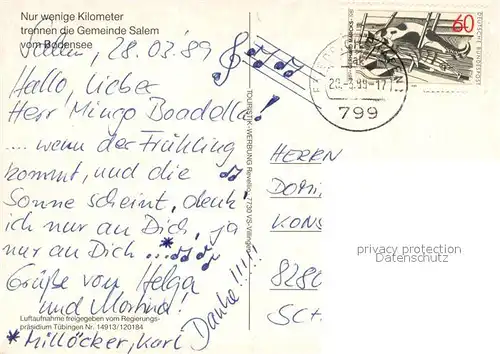 Nur wenige Kilometer
trennen die Gemeinde Salem
vom Bodensee
28.03.89
Hallo, lieber
Herr Mingo Boadella!
.... wenn der Frühling
kommt, und die
Sonne scheint, denk'
ich nur an Dich, ja
nur an Dich ...*
Grüße von Helga
und Martina!
Danke!!!!!
Luftaufnahme freigegeben vom Regierungs-
präsidium Tübingen Nr. 14913/120184
* Millöcker, Karl
TOURISTIK-WERBUNG 7730 VS-Villingen
DEUTSCHE BUNDESPOST
60
-17
799
HERRN
KONS
privacy protection
Datenschutz